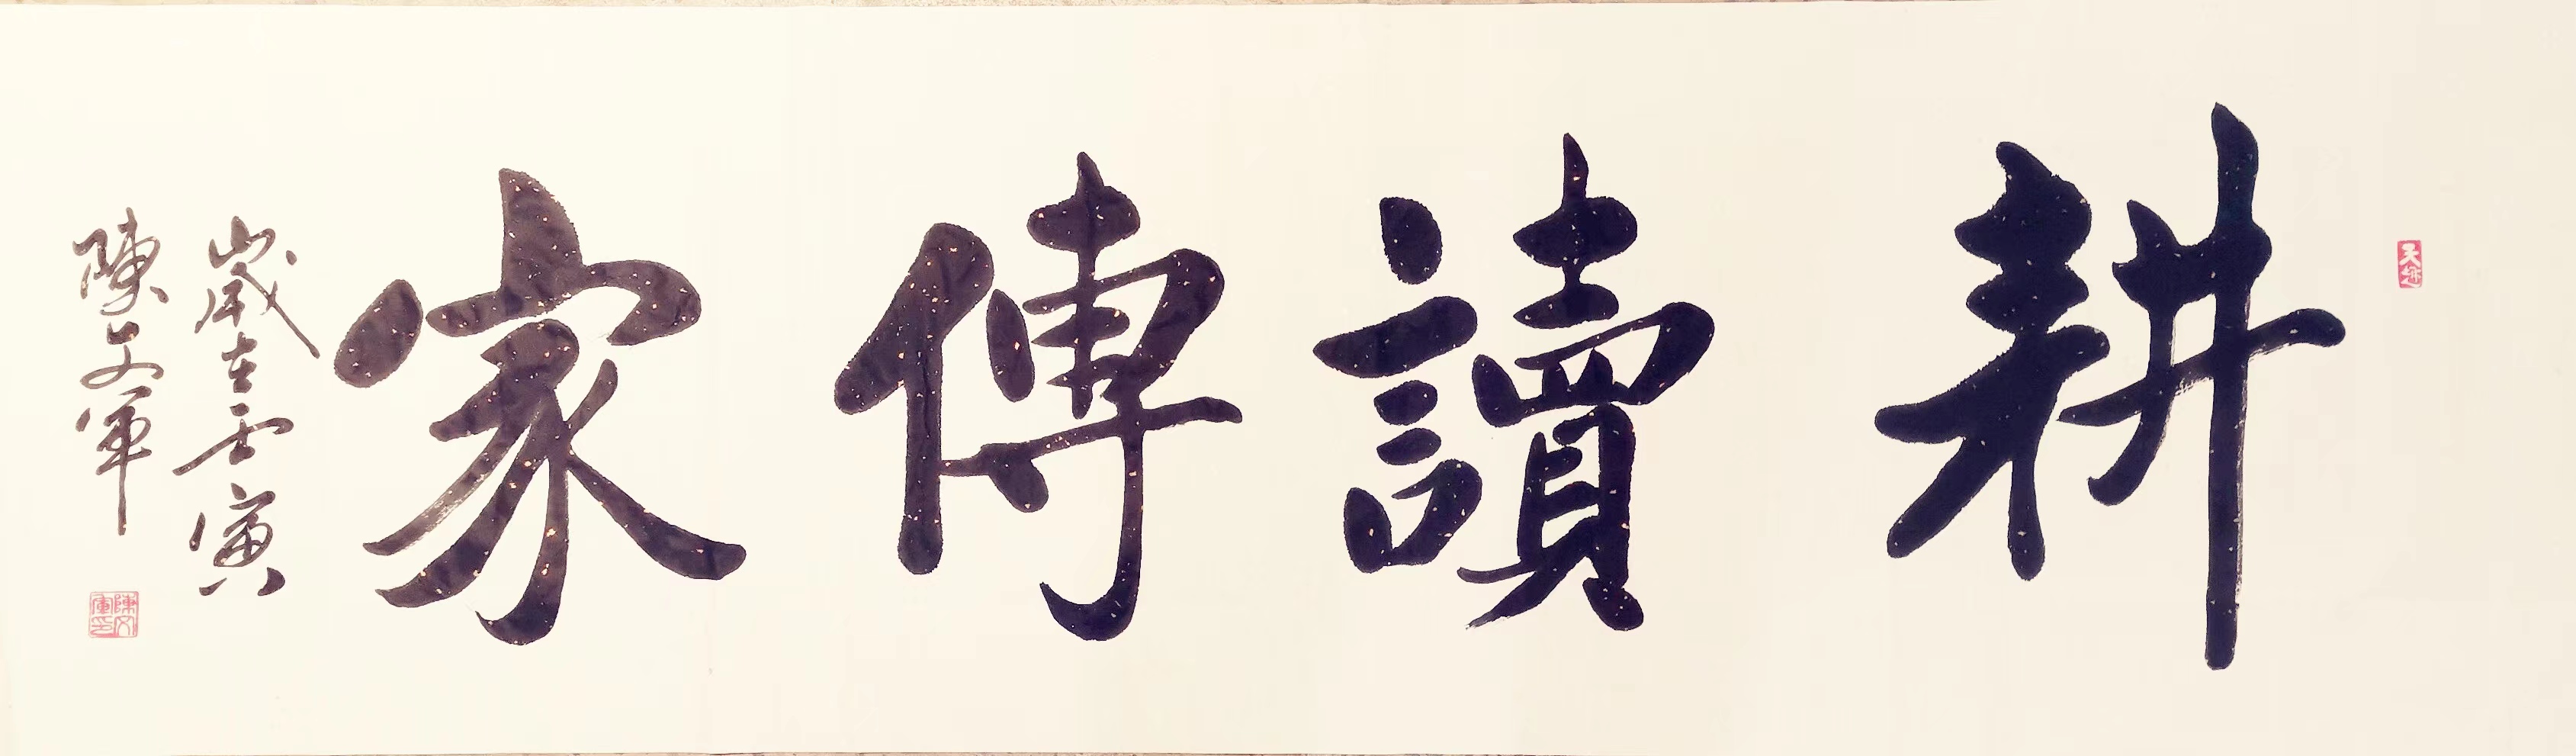 耕讀傳家
歲在壬寅
陳文軍
陳文軍印